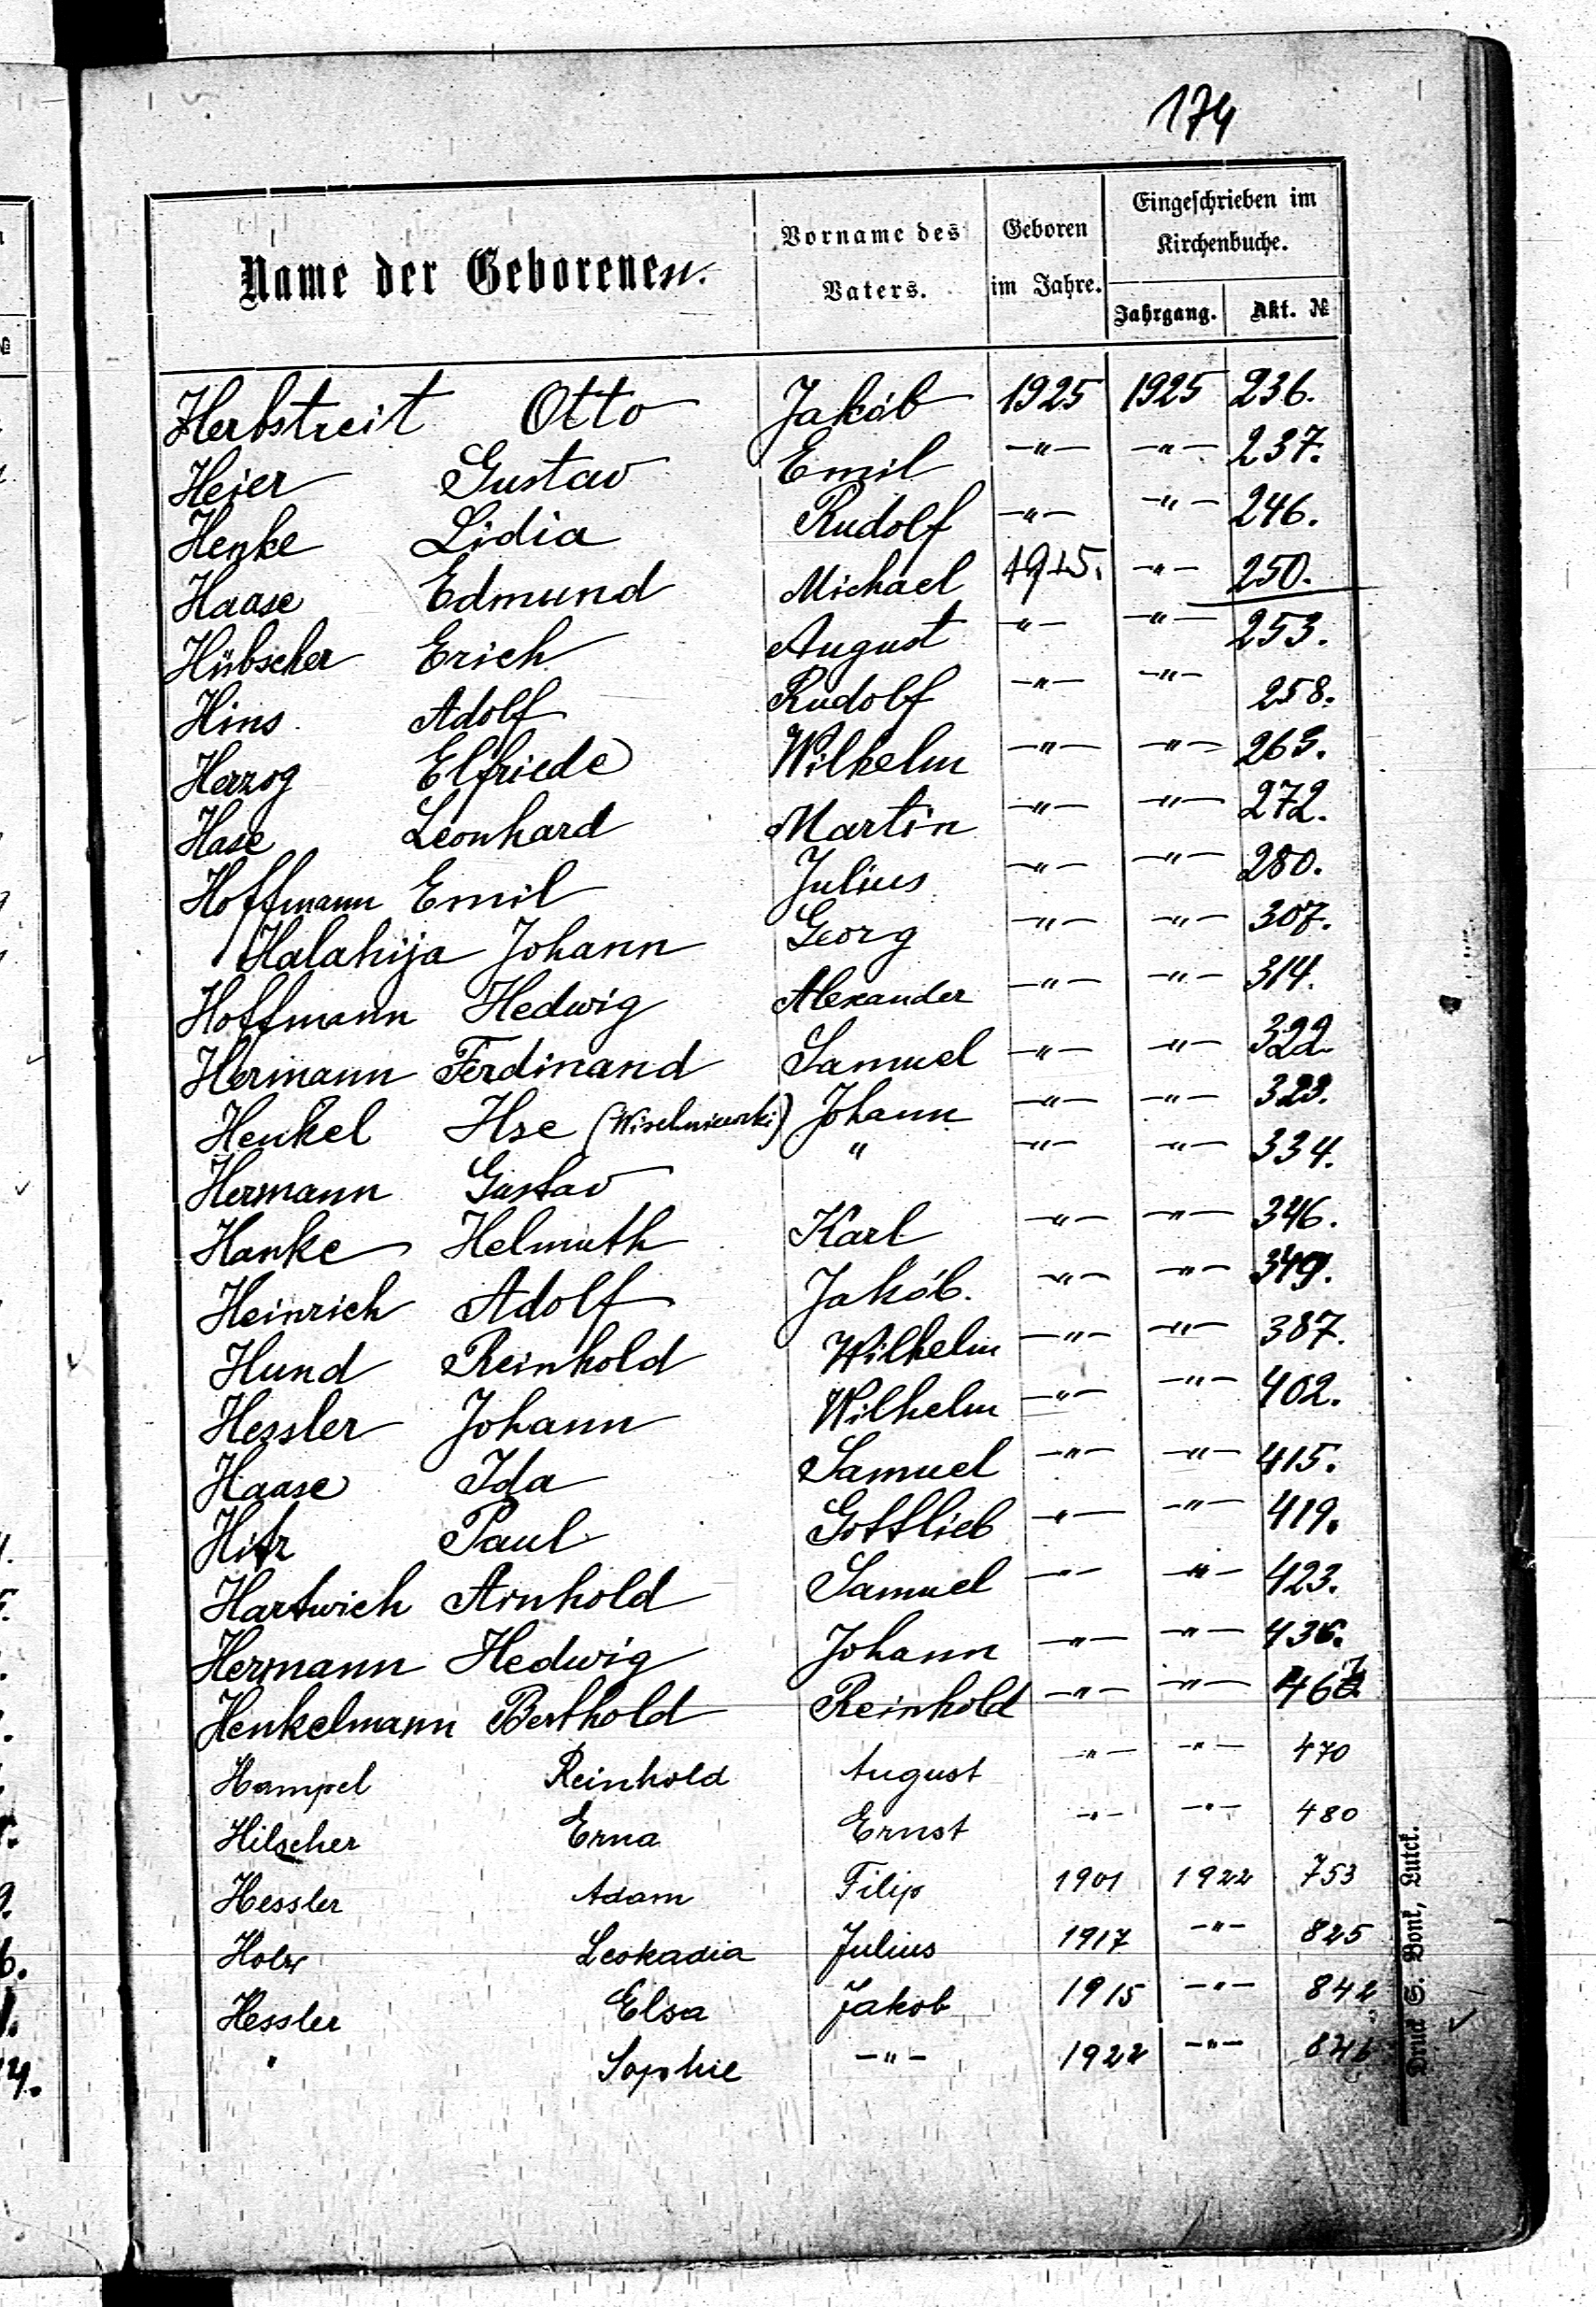 174
Name der Geborenen.
Vorname des Vaters.
Geboren im Jahre.
Eingeschrieben im Kirchenbuche.
Jahrgang. Akt. №
Herbstreit Otto Jakób 1925 1925 236.
Heier Gustav Emil —"— —"— 237.
Henke Lidia Rudolf —"— —"— 246.
Haase Edmund Michael —"— 250.
Hübscher Erich August —"— —"— 253.
Hins Adolf Rudolf —"— —"— 258.
Herzog Elfriede Wilhelm —"— —"— 263.
Hase Leonhard Martin —"— —"— 272.
Hoffmann Emil Julius —"— —"— 280.
Halahija Johann Georg —"— —"— 307.
Hoffmann Hedwig Alexander —"— —"— 314.
Hermann Ferdinand Samuel —"— —"— 322.
Henkel Ilse (Wischniewski) Johann —"— —"— 323.
Hermann Gustav " —"— —"— 334.
Hanke Helmuth Karl —"— —"— 346.
Heinrich Adolf Jakób. —"— —"— 349.
Hund Reinhold Wilhelm —"— —"— 387.
Hessler Johann Wilhelm —"— —"— 402.
Haase Ida Samuel —"— —"— 415.
Hitz Paul Gottlieb —"— —"— 419.
Hartwich Arnhold Samuel —"— —"— 423.
Hermann Hedwig Johann —"— —"— 436.
Henkelmann Berthold Reinhold —"— —"—
Hampel Reinhold August —"— —"— 470
Hilscher Erna Ernst —"— —"— 480
Hessler Adam Filip 1901 1922 753
Holz Leokadia Julius 1917 —"— 825
Hessler Elsa Jakob 1915 —"— 842
" Sophie —"— 1922 —"—
Druck S. Bonk, Lutck.